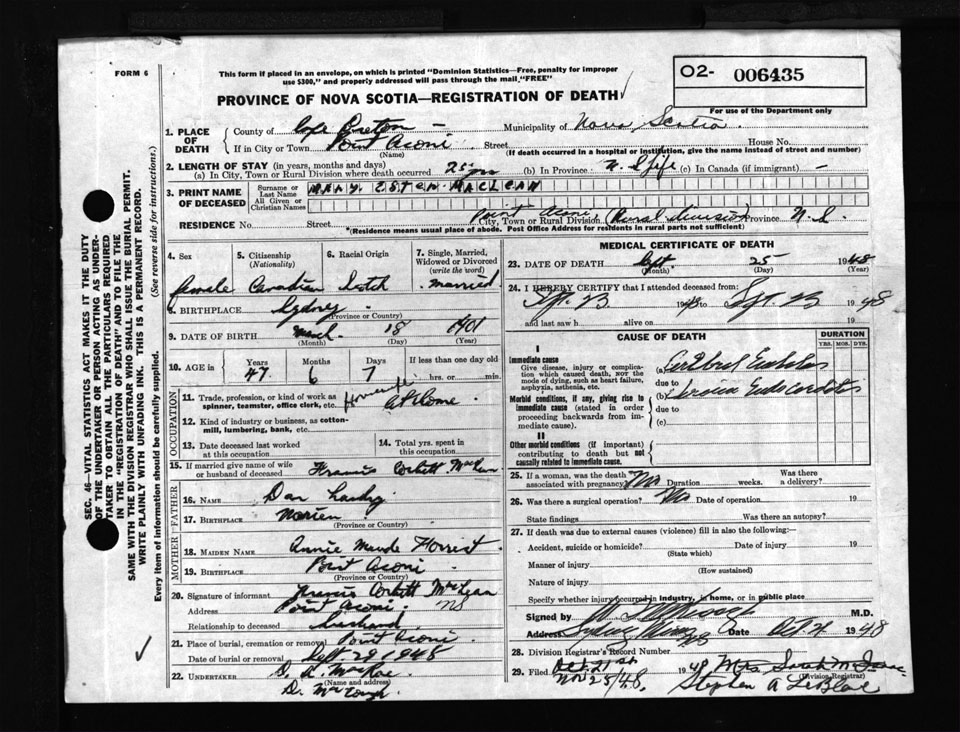 FORM 6
This form if placed in an envelope, on which is printed "Dominion Statistics—Free, penalty for improper
use $300," and properly addressed will pass through the mail, "FREE"
O2- 006435
For use of the Department only
PROVINCE OF NOVA SCOTIA—REGISTRATION OF DEATH
1. PLACE OF DEATH
County of Cape Breton Municipality of Nova Scotia
If in City or Town Point Aconi Street House No.
(Name) (If death occurred in a hospital or institution, give the name instead of street and number)
2. LENGTH OF STAY (in years, months and days)
(a) In City, Town or Rural Division where death occurred (b) In Province N. S life (c) In Canada (if immigrant) —
3. PRINT NAME OF DECEASED
Surname or Last Name MARY ESTEN MACLEAN
All Given or Christian Names
RESIDENCE No. Street Point Aconi (Rural division) Province N.S.
City, Town or Rural Division
*(Residence means usual place of abode. Post Office Address for residents in rural parts not sufficient)
4. Sex female
5. Citizenship (Nationality) Canadian
6. Racial Origin Scotch
7. Single, Married, Widowed or Divorced (write the word) married
8. BIRTHPLACE Sydney
(Province or Country)
9. DATE OF BIRTH March 18 1901
(Month) (Day) (Year)
10. AGE in Years 47 Months 6 Days 7 If less than one day old hrs. or min.
OCCUPATION
11. Trade, profession, or kind of work as spinner, teamster, office clerk, etc. at Home
12. Kind of industry or business, as cotton-mill, lumbering, bank, etc.
13. Date deceased last worked at this occupation
14. Total yrs. spent in this occupation
15. If married give name of wife or husband of deceased Francis Corbett MacLean
FATHER
16. NAME Dan
17. BIRTHPLACE Morien
(Province or Country)
MOTHER
18. MAIDEN NAME Annie Maude Forrest
19. BIRTHPLACE Point Aconi
(Province or Country)
20. Signature of informant Francis Corbett MacLean
Address Point Aconi NS
Relationship to deceased husband
21. Place of burial, cremation or removal Point Aconi
Date of burial or removal Sept 29 1948
22. UNDERTAKER
(Name and address)
MEDICAL CERTIFICATE OF DEATH
23. DATE OF DEATH Sept. 25 1948
(Month) (Day) (Year)
24. I HEREBY CERTIFY that I attended deceased from:
1948 to 1948
and last saw h alive on 19
CAUSE OF DEATH
DURATION
YRS. MOS. DYS.
I
Immediate cause
Give disease, injury or complication which caused death, not the mode of dying, such as heart failure, asphyxia, asthenia, etc.
(a) Cerebral Embolus
due to
Morbid conditions, if any, giving rise to immediate cause (stated in order proceeding backwards from immediate cause).
(b) Chronic Endocarditis
due to
(c)
II
Other morbid conditions (if important) contributing to death but not causally related to immediate cause.
25. If a woman, was the death associated with pregnancy? No Duration weeks. Was there a delivery?
26. Was there a surgical operation? No Date of operation 19
State findings Was there an autopsy?
27. If death was due to external causes (violence) fill in also the following:—
Accident, suicide or homicide? Date of injury 19
(State which)
Manner of injury
(How sustained)
Nature of injury
Specify whether injury occurred in industry, in home, or in public place
Signed by M.D.
Address Sydney Mines Date Oct 2 1948
28. Division Registrar's Record Number
29. Filed Oct. 21st 1948 Mrs Sarah M
Nov 25/48 Stephen A LeBlanc
(Division Registrar)
SEC. 46—VITAL STATISTICS ACT MAKES IT THE DUTY
OF THE UNDERTAKER OR PERSON ACTING AS UNDER-
TAKER TO OBTAIN ALL THE PARTICULARS REQUIRED
IN THE "REGISTRATION OF DEATH" AND TO FILE THE
SAME WITH THE DIVISION REGISTRAR WHO SHALL ISSUE THE BURIAL PERMIT.
WRITE PLAINLY WITH UNFADING INK. THIS IS A PERMANENT RECORD.
Every item of information should be carefully supplied. (See reverse side for instructions.)